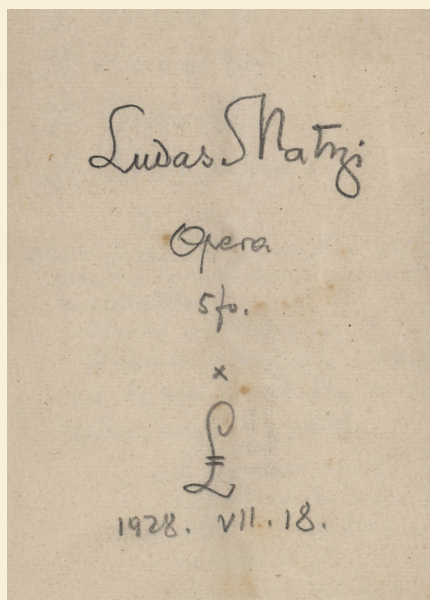 Ludas Matyi
Opera
5 fv.
x
£
1928. VII. 18.